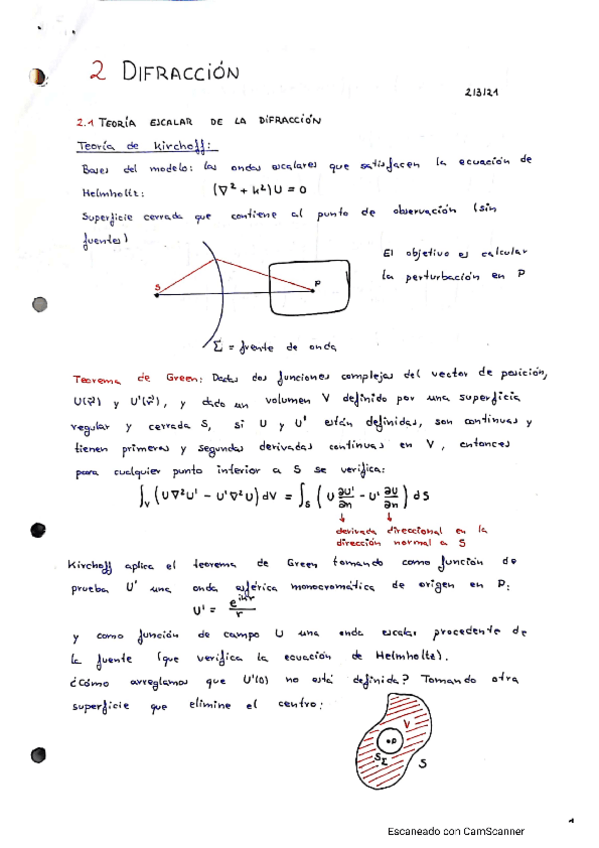 2 DIFRACCIÓN
2/3/21
2.1 TEORÍA ESCALAR DE LA DIFRACCIÓN
Teoría de Kirchoff:
Bases del modelo: las ondas escalares que satisfacen la ecuación de
Helmholtz: (∇² + k²)U = 0
Superficie cerrada que contiene al punto de observación (sin
fuentes)
El objetivo es calcular
la perturbación en P
S
P
Σ = frente de onda
Teorema de Green: Dadas dos funciones complejas del vector de posición,
U(r⃗) y U'(r⃗), y dado un volumen V definido por una superficie
regular y cerrada S, si U y U' están definidas, son continuas y
tienen primeras y segundas derivadas continuas en V, entonces
para cualquier punto interior a S se verifica:
∫_V (U∇²U' - U'∇²U)dV = ∫_S (U ∂U'/∂n - U' ∂U/∂n) dS
derivada direccional en la
dirección normal a S
Kirchoff aplica el teorema de Green tomando como función de
prueba U' una onda esférica monocromática de origen en P:
U' = e^{ikr}/r
y como función de campo U una onda escalar procedente de
la fuente (que verifica la ecuación de Helmholtz).
¿Cómo arreglamos que U'(0) no está definida? Tomando otra
superficie que elimine el centro:
V
P
S_Σ
S
1
Escaneado con CamScanner